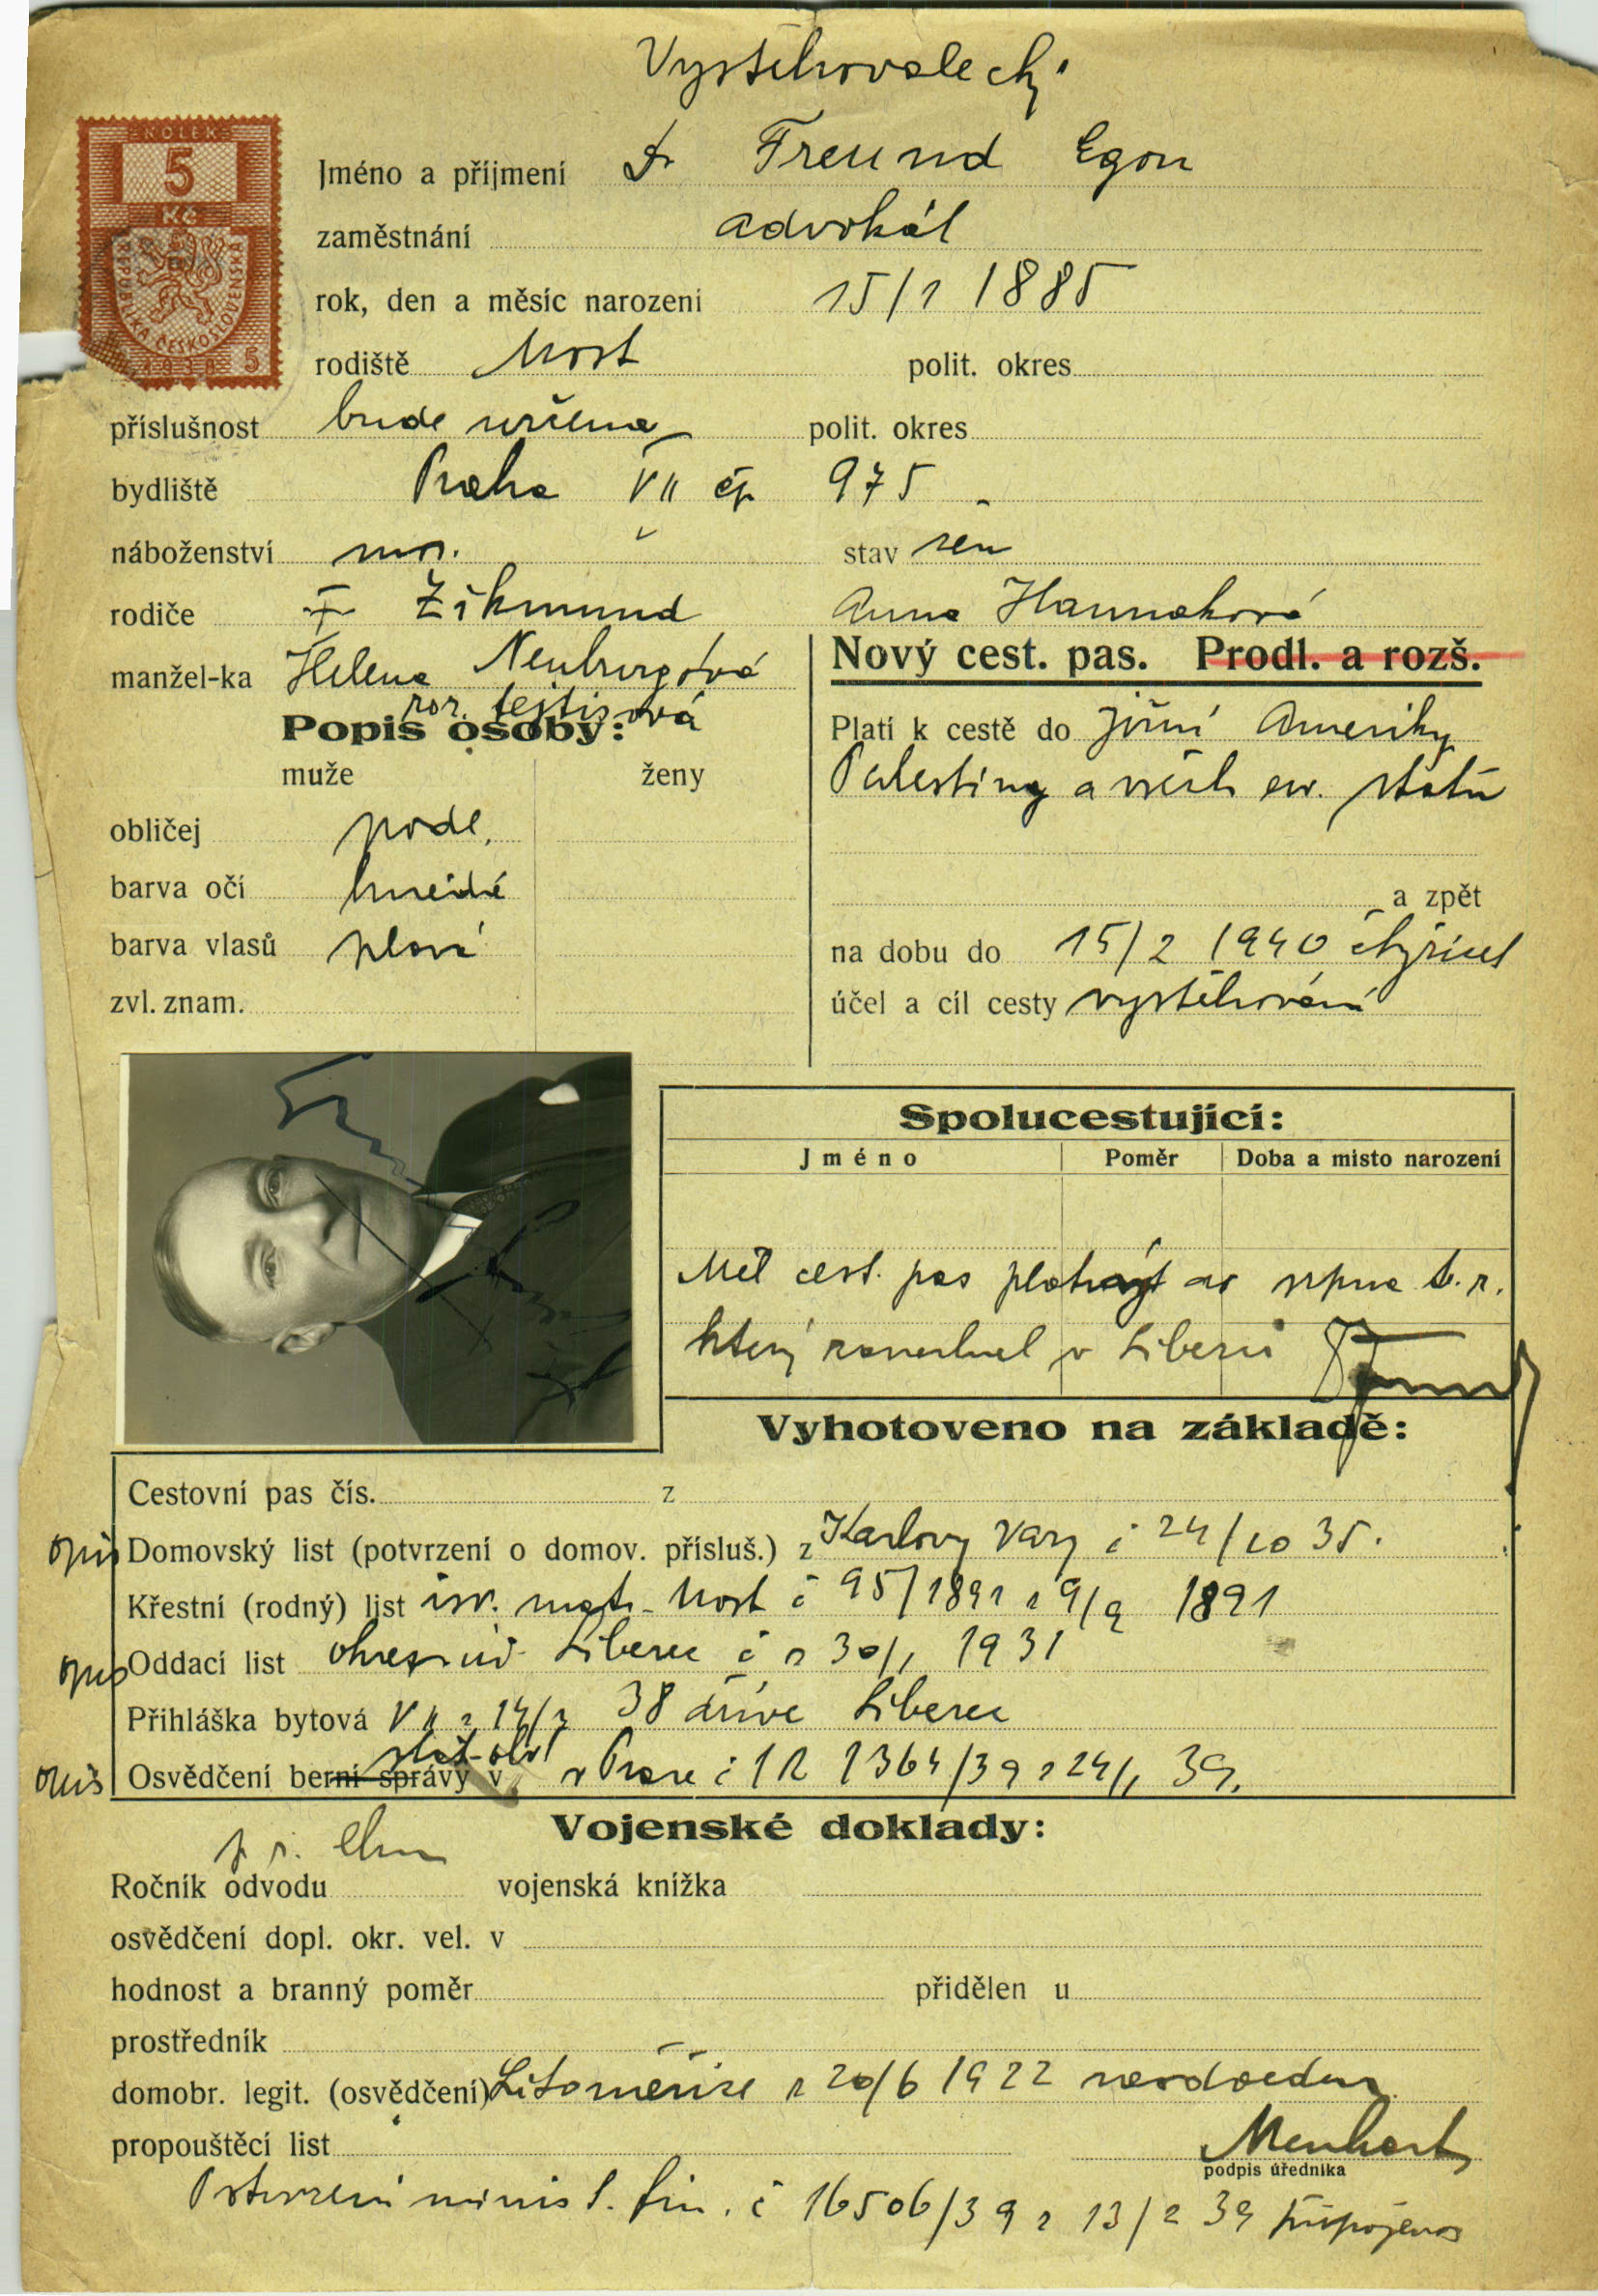 Vystěhovalecký
KOLEK
5
Kč
REPUBLIKA ČESKOSLOVENSKÁ
1938 5
Jméno a příjmení Dr Freund Egon
zaměstnání advokát
rok, den a měsíc narození 15/1 1885
rodiště Most polit. okres
příslušnost bude určena polit. okres
bydliště Praha VII čp 975
náboženství stav žen
rodiče † Zikmund Anna Hannaková
manžel-ka Helena Neuburgová
roz.
Nový cest. pas. Prodl. a rozš.
Popis osoby:
muže ženy
obličej podl.
barva očí hnědé
barva vlasů plavé
zvl. znam.
Platí k cestě do jižní Ameriky
Palestiny a všech ev. států
a zpět
na dobu do 15/2 1940 čtyřicet
účel a cíl cesty vystěhování
Spolucestující:
Jméno Poměr Doba a místo narození
Měl cest. pas platný do srpna t. r.
který zanechal v Liberci
Vyhotoveno na základě:
Cestovní pas čís. z
opis Domovský list (potvrzení o domov. přísluš.) z Karlovy Vary č 24/10 35.
Křestní (rodný) list isr. mat. Most č 95/1891 z 9/9 1891
opis Oddací list okres. úř. Liberec č z 30/1 1931
Přihláška bytová VII z 14/2 38 dříve Liberec
stát. obč
opis Osvědčení berní správy v v Praze č 1R 1364/39 z 24/1 39.
Vojenské doklady:
Ročník odvodu vojenská knížka
osvědčení dopl. okr. vel. v
hodnost a branný poměr přidělen u
prostředník
domobr. legit. (osvědčení) Litoměřice z 20/6 1922 neodveden
propouštěcí list Menhart
podpis úředníka
Potvrzení minist. fin. č 16506/39 z 13/2 39 připojeno